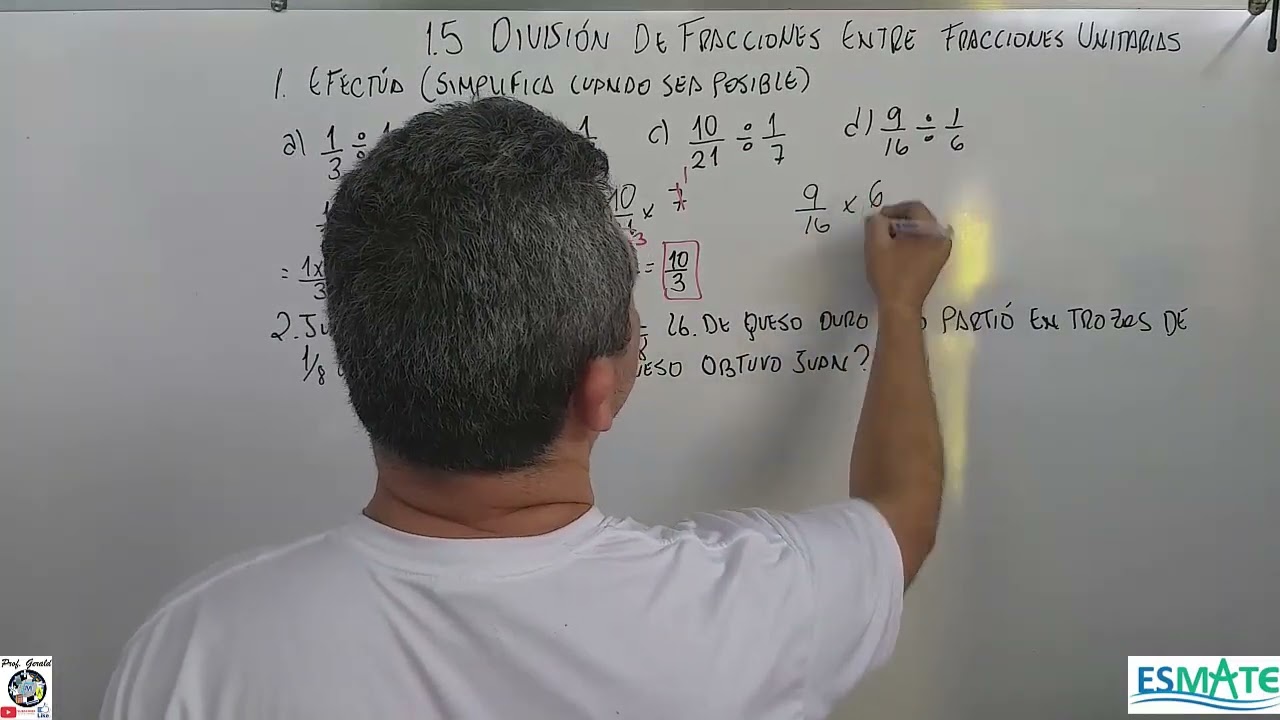 1.5 DIVISIÓN DE FRACCIONES ENTRE FRACCIONES UNITARIAS
1. EFECTÚA (SIMPLIFICA CUANDO SEA POSIBLE)
a) 1/3 ÷ 1 c) 10/21 ÷ 1/7 d) 9/16 ÷ 1/6
10 × 7 1 9/16 × 6
3
= 1x/3 = 10/3
2. Ju lb. DE QUESO DURO PARTIÓ EN TROZOS DE
1/8 OBTUVO JUAN?
Prof. Gerald
ESMATE